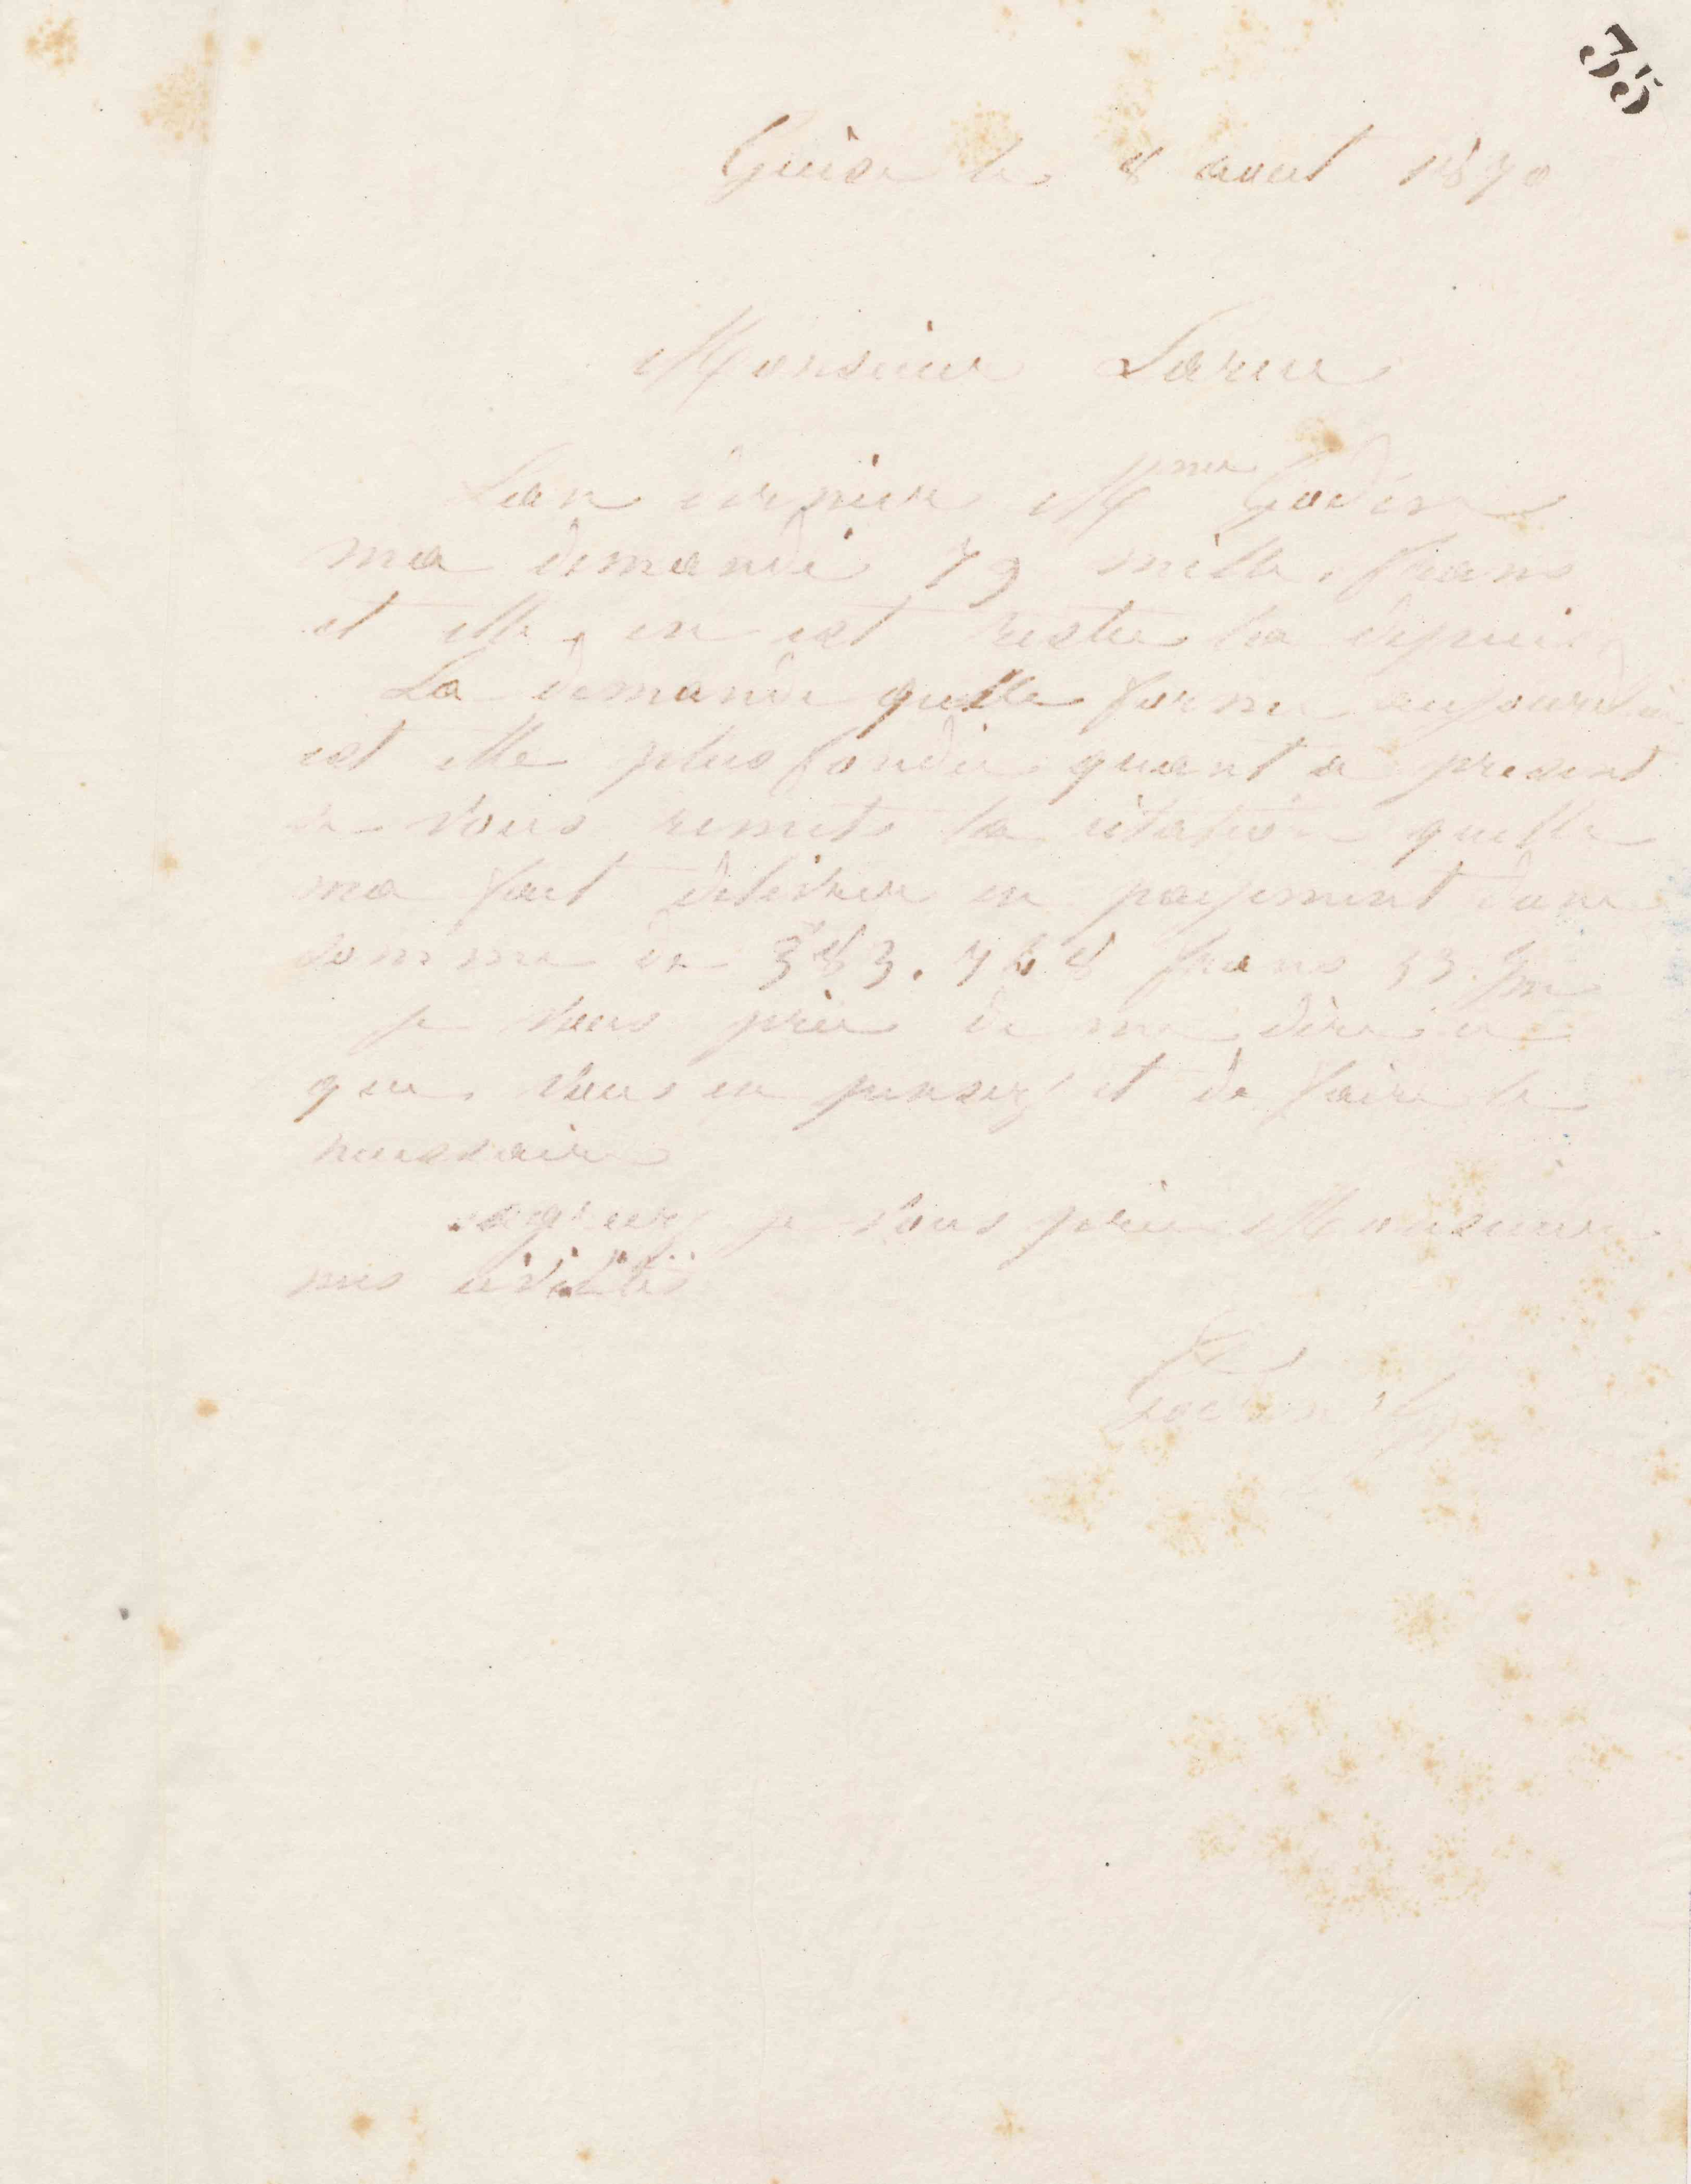 35
Guise le 8 aout 1870
Monsieur Larue
Lan dernier Mme Godin
ma demandé 79 mille frans
et elle en est restée la depuis
La demande quelle forme aujourdhui
est elle plus fondée quant a present
je vous remets la citation quelle
ma fait délivrer en payement dune
somme de 383.768 frans 33
je vous prie de me dire ce
que vous en pensez et de faire le
nessaire
agreez je vous prie Monsieur
mes civilités
Godin